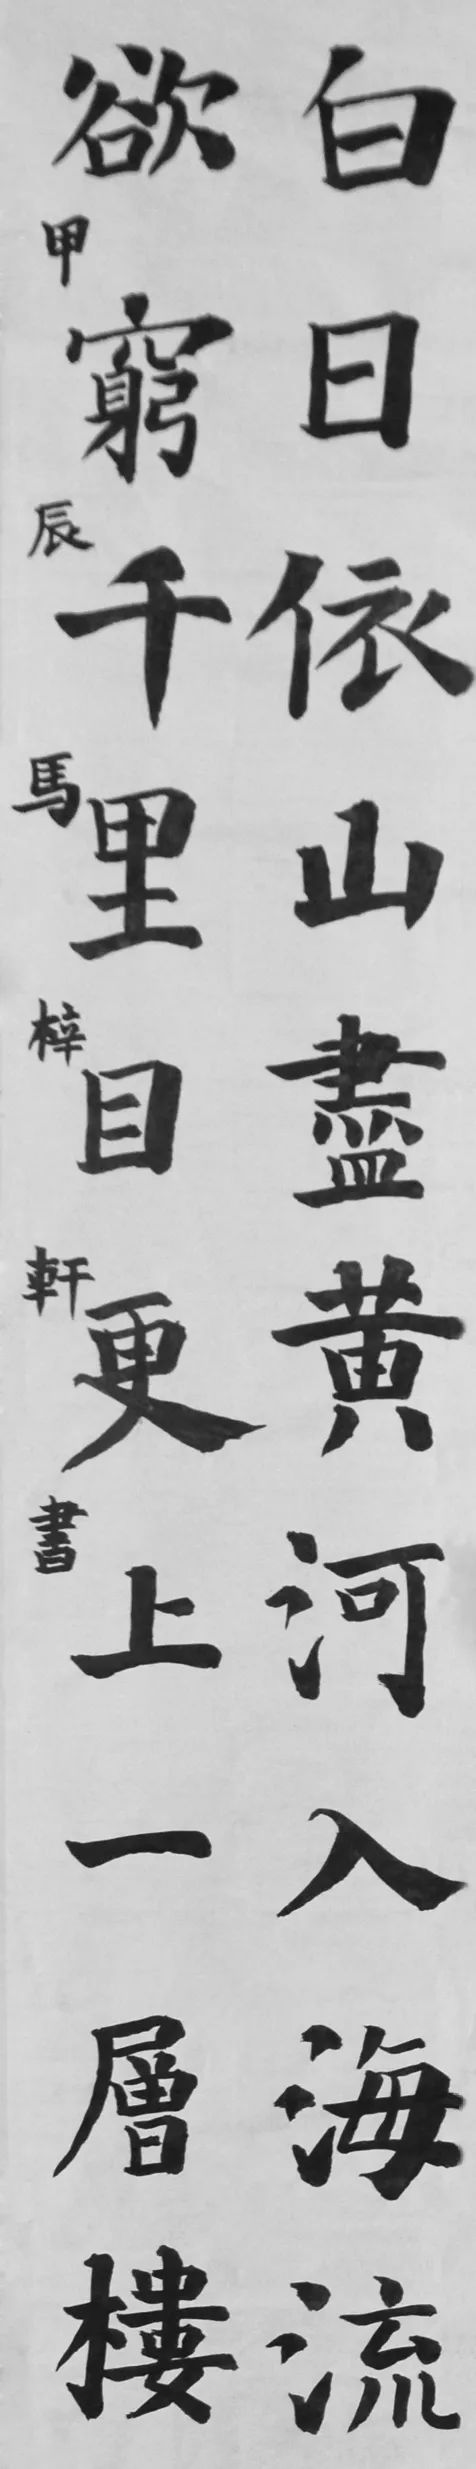 白日依山盡黃河入海流
欲窮千里目更上一層樓
甲辰馬梓軒書